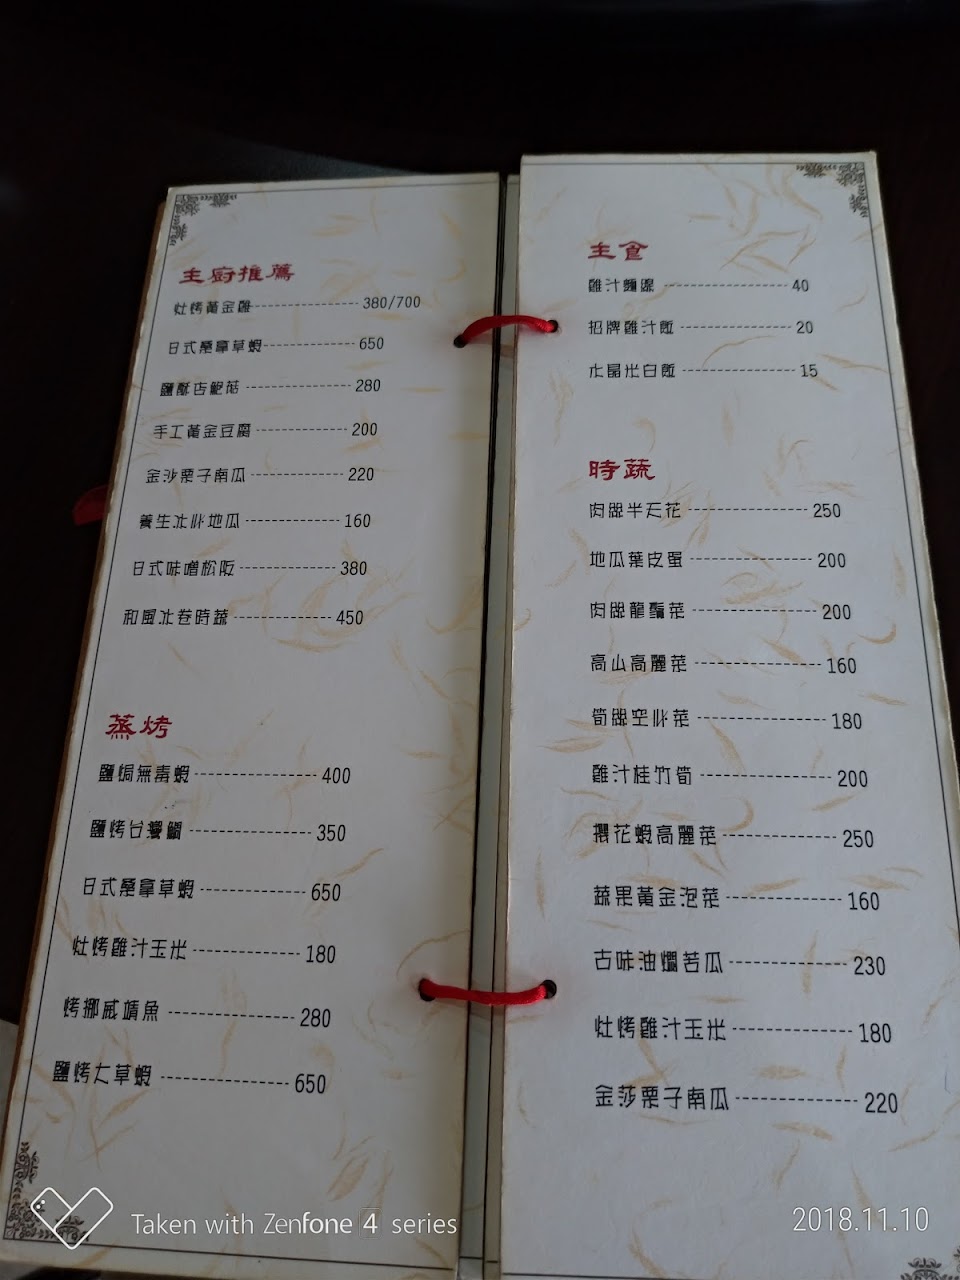 主廚推薦
灶烤黃金雞 380/700
日式桑拿草蝦 650
鹽酥杏鮑菇 280
手工黃金豆腐 200
金沙栗子南瓜 220
養生冰心地瓜 160
日式味噌松阪 380
和風冰卷時蔬 450
蒸烤
鹽焗無毒蝦 400
鹽烤台灣鯛 350
日式桑拿草蝦 650
灶烤雞汁玉米 180
烤挪威鯖魚 280
鹽烤大草蝦 650
主食
雞汁麵線 40
招牌雞汁飯 20
水晶米白飯 15
時蔬
肉絲半天花 250
地瓜葉皮蛋 200
肉絲龍鬚菜 200
高山高麗菜 160
筍絲空心菜 180
雞汁桂竹筍 200
櫻花蝦高麗菜 250
蔬果黃金泡菜 160
古味油燜苦瓜 230
灶烤雞汁玉米 180
金莎栗子南瓜 220
Taken with Zenfone 4 series
2018.11.10